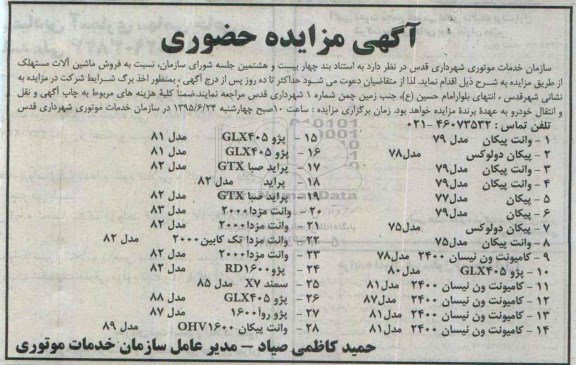 آگهی مزایده حضوری
سازمان خدمات موتوری شهرداری قدس در نظر دارد به استناد بند چهار بیست و هشتمین جلسه شورای سازمان، نسبت به فروش ماشین آلات مستهلک
از طریق مزایده به شرح ذیل اقدام نماید. لذا از متقاضیان دعوت می شود حداکثر تا ده روز پس از درج آگهی ، بمنظور اخذ برگ شرایط شرکت در مزایده به
نشانی شهرقدس ، انتهای بلوارامام حسین (ع)، جنب زمین چمن شماره ۱ شهرداری قدس مراجعه نمایند.ضمناً کلیه هزینه های مربوط به چاپ آگهی و نقل
و انتقال خودرو به عهدۀ برندۀ مزایده خواهد بود. زمان برگزاری مزایده : ساعت ۱۰صبح چهارشنبه ۱۳۹۵/۶/۲۴ در سازمان خدمات موتوری شهرداری قدس
تلفن تماس : ۴۶۰۷۳۵۳۲ -۰۲۱
۱ - وانت پیکان مدل ۷۹
۲ - پیکان دولوکس مدل۷۸
۳ - وانت پیکان مدل۷۹
۴ - وانت پیکان مدل۷۹
۵ - پیکان مدل۷۷
۶ - پیکان مدل۷۹
۷ - پیکان دولوکس مدل۷۵
۸ - وانت پیکان مدل۷۵
۹ - کامیونت ون نیسان ۲۴۰۰ مدل۷۸
۱۰ - پژو GLX۴۰۵ مدل۸۰
۱۱ - کامیونت ون نیسان ۲۴۰۰ مدل۸۱
۱۲ - کامیونت ون نیسان ۲۴۰۰ مدل۸۷
۱۳ - کامیونت ون نیسان ۲۴۰۰ مدل۸۱
۱۴ - کامیونت ون نیسان ۲۴۰۰ مدل۸۱
۱۵ - پژو GLX۴۰۵ مدل ۸۱
۱۶ - پژو GLX۴۰۵ مدل ۸۱
۱۷ - پراید صبا GTX مدل ۸۲
۱۸ - پراید مدل ۸۲
۱۹ - پراید صبا GTX مدل ۸۲
۲۰ - وانت مزدا۲۰۰۰ مدل ۸۳
۲۱ - وانت مزدا۲۰۰۰ مدل ۸۲
۲۲ - وانت مزدا تک کابین۲۰۰۰ مدل ۸۲
۲۳ - وانت مزدا۲۰۰۰ مدل ۸۲
۲۴ - پژو RD۱۶۰۰ مدل ۸۲
۲۵ - سمند X۷ مدل ۸۵
۲۶ - پژو GLX۴۰۵ مدل ۸۸
۲۷ - پژو روا۱۶۰۰ مدل ۸۷
۲۸ - وانت پیکان OHV۱۶۰۰ مدل ۸۹
حمید کاظمی صیاد - مدیر عامل سازمان خدمات موتوری